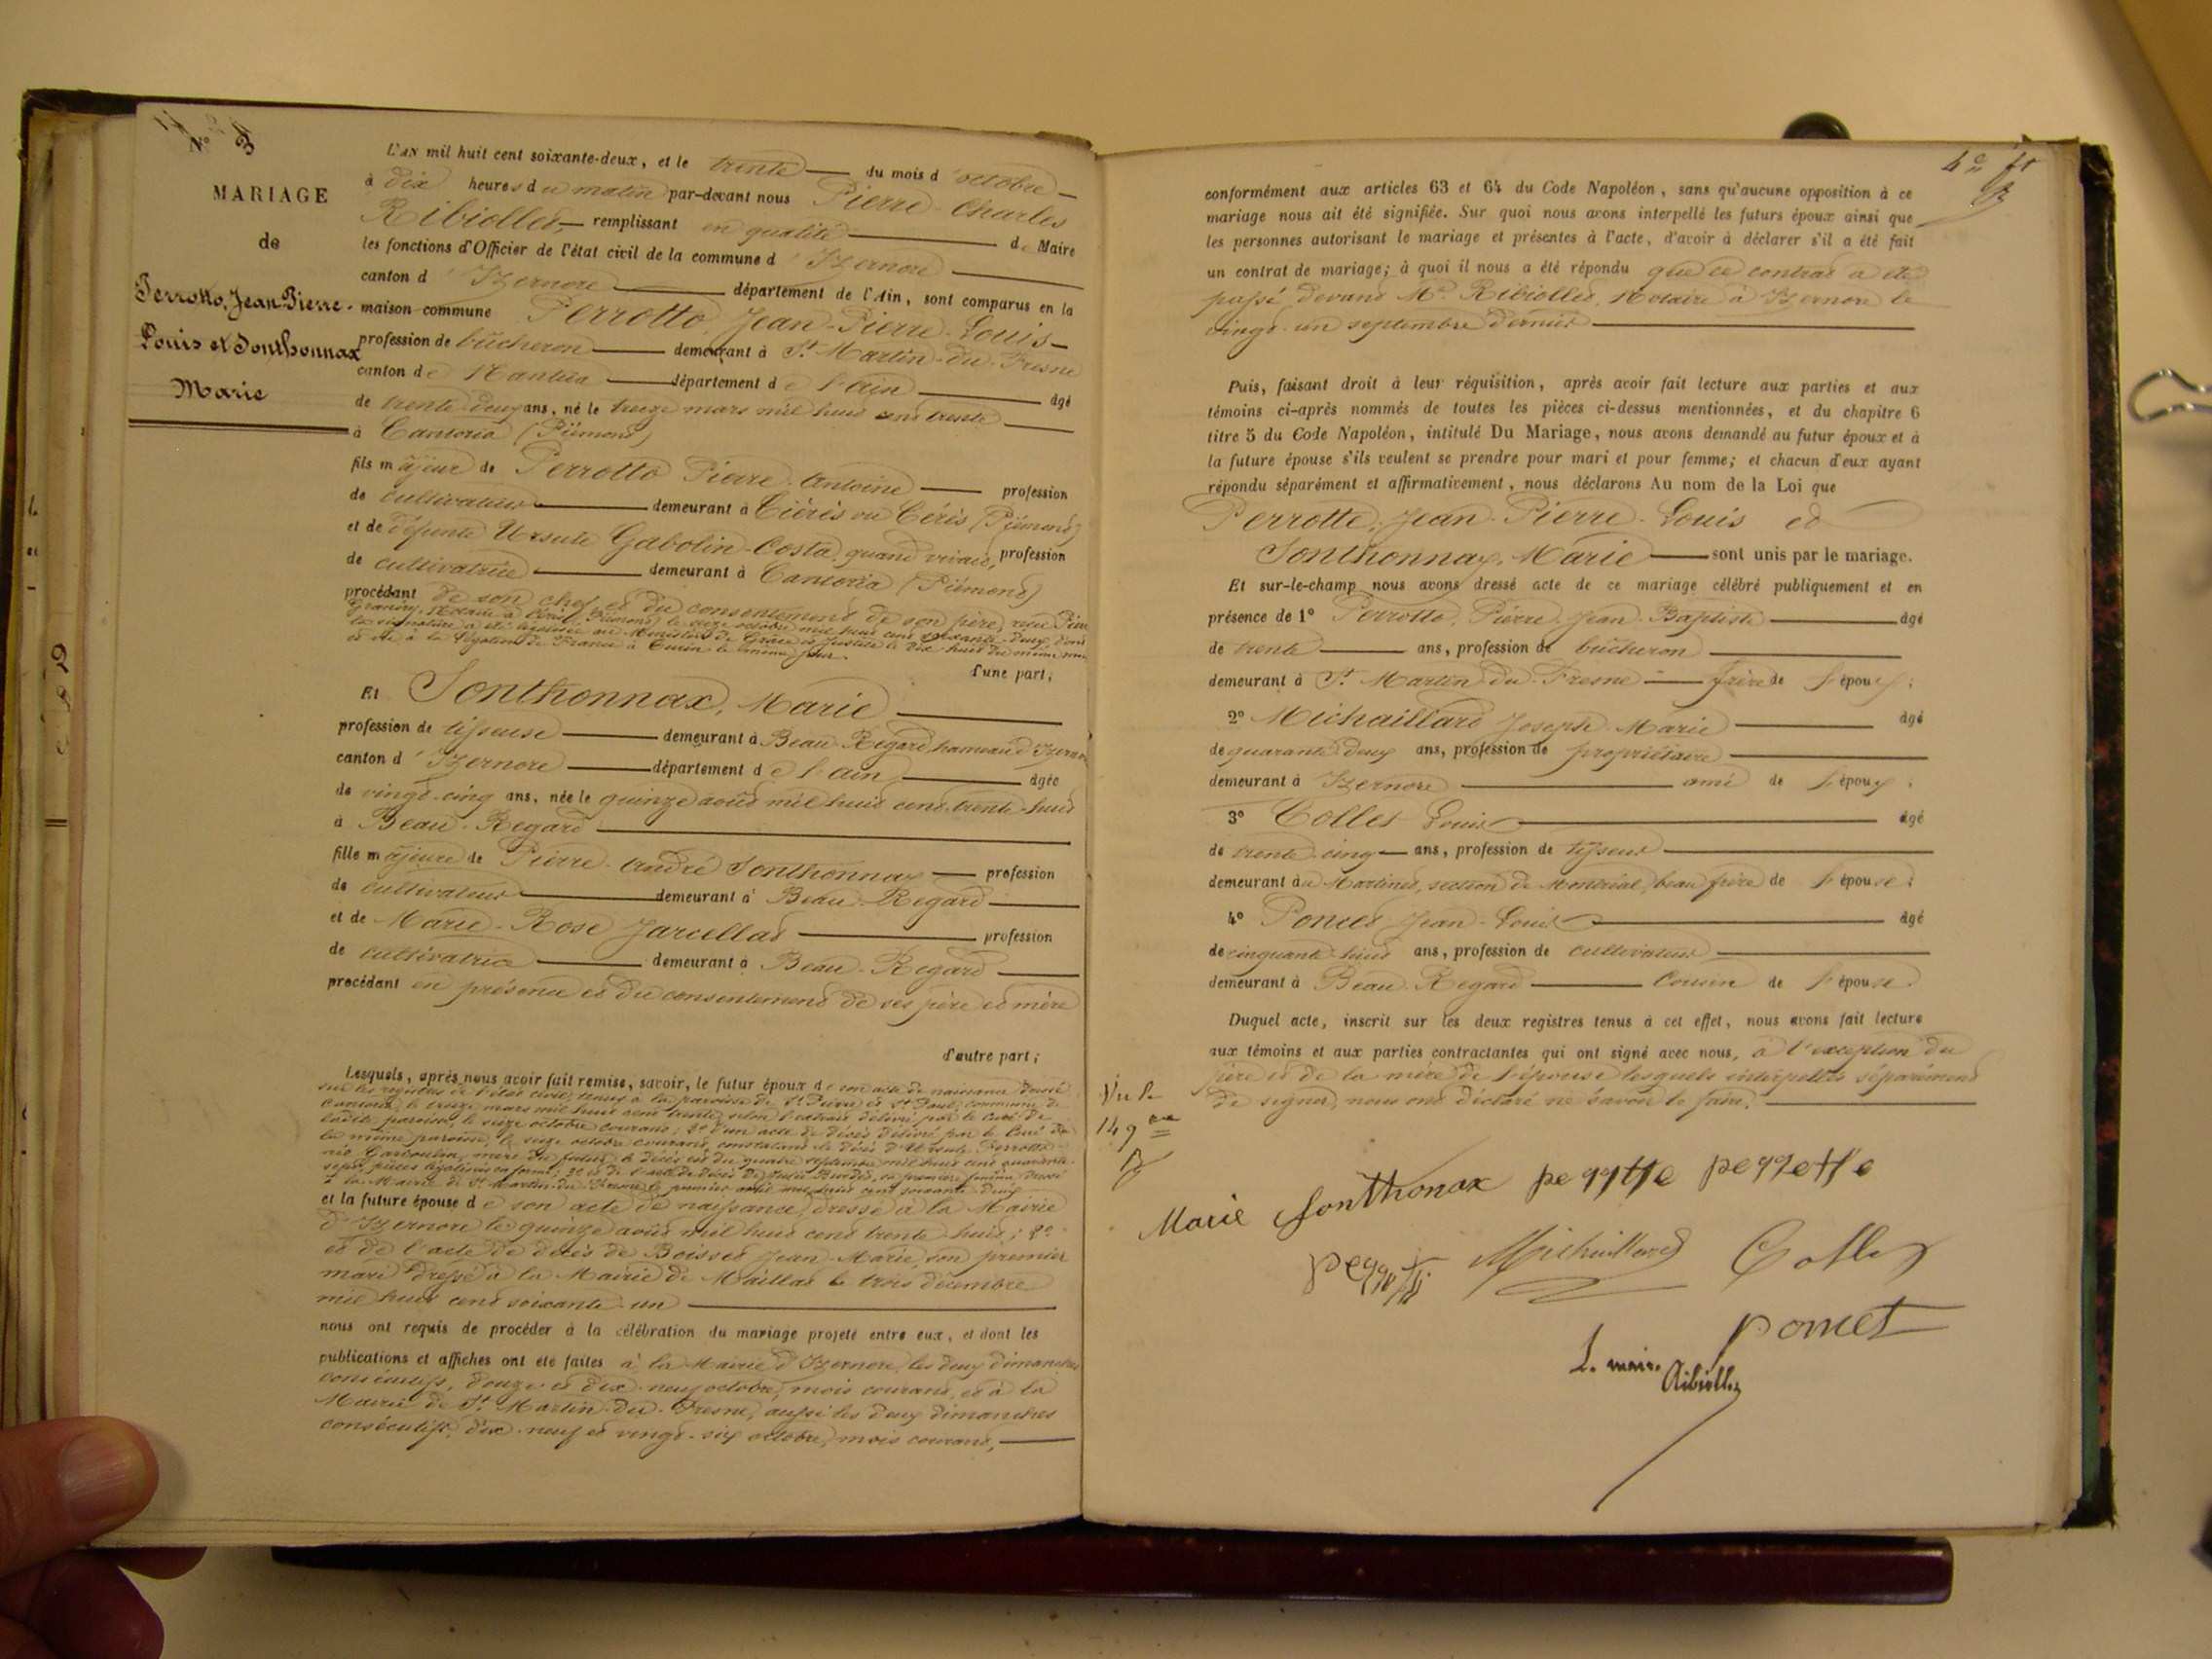 N° 3
MARIAGE
de
Perrotto, Jean Pierre-
Louis et Sonthonnax
Marie
L'AN mil huit cent soixante-deux, et le trente du mois d'octobre
à dix heures du matin par-devant nous Pierre-Charles
Ribiollet, remplissant en qualité de Maire
les fonctions d'Officier de l'état civil de la commune d'Izernore
canton d'Izernore département de l'Ain, sont comparus en la
maison-commune Perrotto, Jean-Pierre-Louis
profession de bûcheron demeurant à St. Martin-du-Fresne
canton de Nantua département de l'ain âgé
de trente-deux ans, né le treize mars mil huit cent trente
à Cantoria (Piémont)
fils majeur de Perrotto Pierre-Antoine profession
de cultivateur demeurant à Ciérès ou Cérès (Piémont)
et de défunte Ursule Gabolin-Costa, quand vivait, profession
de cultivatrice demeurant à Cantoria (Piémont)
procédant de son chef et du consentement de son père, reçu
Notaire à Cérès (Piémont) le seize octobre mil huit cent soixante-deux, dont
la signature a été légalisée au Ministère de Grâce et Justice le dix-huit du même mois
et à la légation de France à Turin le même jour.
d'une part;
Et Sonthonnax, Marie
profession de tisseuse demeurant à Beau-Regard, hameau d'Izernore
canton d'Izernore département de l'ain âgée
de vingt-cinq ans, née le quinze août mil huit cent trente-huit
à Beau-Regard
fille majeure de Pierre-André Sonthonnax profession
de cultivateur demeurant à Beau-Regard
et de Marie-Rose Jarcellat profession
de cultivatrice demeurant à Beau-Regard
procédant en présence et du consentement de ses père et mère
d'autre part;
Lesquels, après nous avoir fait remise, savoir, le futur époux de son acte de naissance dressé
sur les registres de l'état civil, tenus à la paroisse de St. Pierre et St. Paul, commune de
Cantoria, le treize mars mil huit cent trente, selon l'extrait délivré par le Curé de
ladite paroisse, le seize octobre courant; 2° d'un acte de décès délivré par le Curé de
la même paroisse, le seize octobre courant, constatant le décès d'Ursule Perrotto
née , mère du futur, le décès est du quatre septembre mil huit cent quarante-
sept, pièces légalisées en forme; 3° et de l'acte de décès de , sa première femme, dressé
à la Mairie de St. Martin-du-Fresne le premier mil huit cent soixante-deux
et la future épouse de son acte de naissance, dressé à la Mairie
d'Izernore le quinze août mil huit cent trente-huit; 2°
et de l'acte de décès de Boisset Jean-Marie, son premier
mari dressé à la Mairie de Maillat le trois décembre
mil huit cent soixante-un
nous ont requis de procéder à la célébration du mariage projeté entre eux, et dont les
publications et affiches ont été faites à la Mairie d'Izernore, les deux dimanches
consécutifs, douze et dix-neuf octobre, mois courant, et à la
Mairie de St. Martin-du-Fresne, aussi les deux dimanches
consécutifs, dix-neuf et vingt-six octobre, mois courant,
conformément aux articles 63 et 64 du Code Napoléon, sans qu'aucune opposition à ce
mariage nous ait été signifiée. Sur quoi nous avons interpellé les futurs époux ainsi que
les personnes autorisant le mariage et présentes à l'acte, d'avoir à déclarer s'il a été fait
un contrat de mariage; à quoi il nous a été répondu que ce contrat a été
passé devant Me. Ribiollet, Notaire à Izernore le
vingt-un septembre dernier
Puis, faisant droit à leur réquisition, après avoir fait lecture aux parties et aux
témoins ci-après nommés de toutes les pièces ci-dessus mentionnées, et du chapitre 6
titre 5 du Code Napoléon, intitulé Du Mariage, nous avons demandé au futur époux et à
la future épouse s'ils veulent se prendre pour mari et pour femme; et chacun d'eux ayant
répondu séparément et affirmativement, nous déclarons Au nom de la Loi que
Perrotto, Jean-Pierre-Louis et
Sonthonnax, Marie sont unis par le mariage.
Et sur-le-champ nous avons dressé acte de ce mariage célébré publiquement et en
présence de 1° Perrotto, Pierre-Jean-Baptiste âgé
de trente ans, profession de bûcheron
demeurant à St. Martin-du-Fresne frère de l'époux;
2° Michaillard Joseph-Marie âgé
de quarante-deux ans, profession de propriétaire
demeurant à Izernore ami de l'époux;
3° Collet Louis âgé
de trente-cinq ans, profession de tisseur
demeurant au Martinet, section de Montréal, beau-frère de l'épouse;
4° Poncet Jean-Louis âgé
de cinquante-huit ans, profession de cultivateur
demeurant à Beau-Regard Cousin de l'épouse
Duquel acte, inscrit sur les deux registres tenus à cet effet, nous avons fait lecture
aux témoins et aux parties contractantes qui ont signé avec nous, à l'exception du
père et de la mère de l'épouse lesquels interpellés séparément
de signer, nous ont déclaré ne savoir le faire.
Marie Sonthonax
Michaillard Collet
Poncet
L. maire
Ribiollet